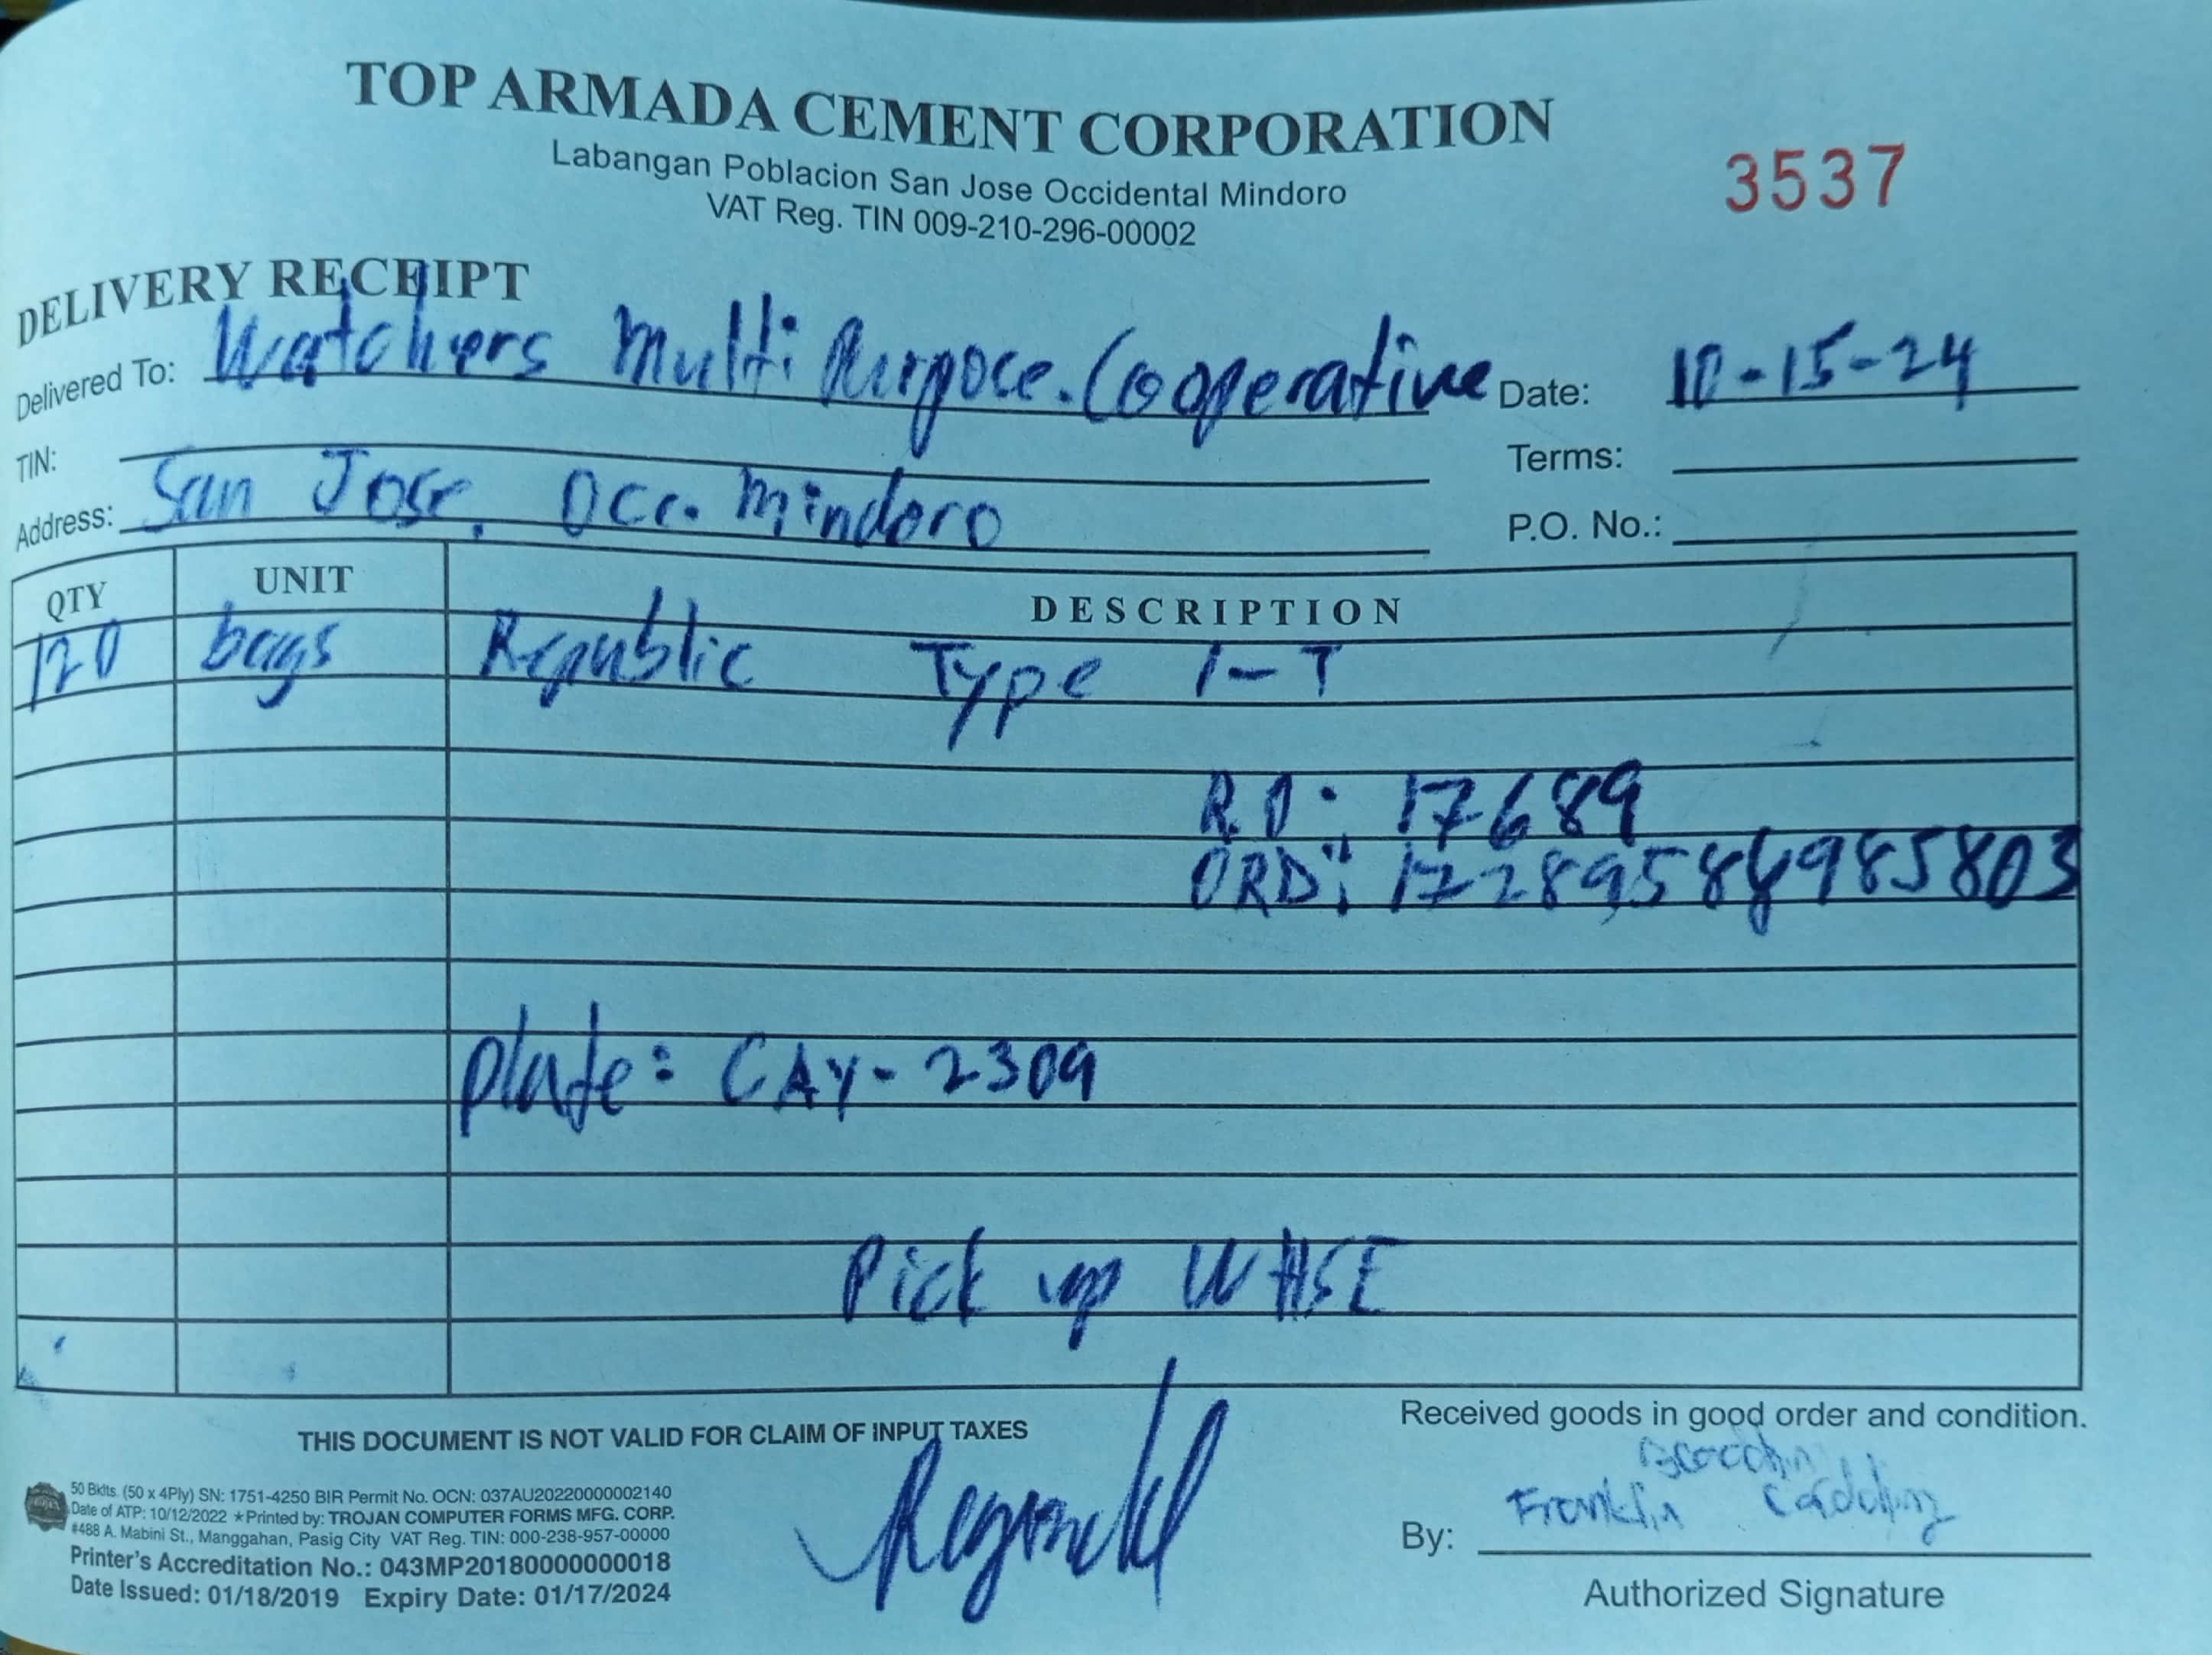 TOP ARMADA CEMENT CORPORATION
Labangan Poblacion San Jose Occidental Mindoro
VAT Reg. TIN 009-210-296-00002
3537
DELIVERY RECEIPT
Delivered To: Watchers Multi Purpoce. Cooperative Date: 10-15-24
TIN: Terms:
Address: San Jose, Occ. Mindoro P.O. No.:
QTY UNIT DESCRIPTION
120 bags Republic Type 1-T
R.O: 17689
ORD#: 1728958
Plate: CAY-2309
Pick up WHSE
THIS DOCUMENT IS NOT VALID FOR CLAIM OF INPUT TAXES
Received goods in good order and condition.
50 Bklts. (50 x 4Ply) SN: 1751-4250 BIR Permit No. OCN: 037AU20220000002140
Date of ATP: 10/12/2022 ★Printed by: TROJAN COMPUTER FORMS MFG. CORP.
#488 A. Mabini St., Manggahan, Pasig City VAT Reg. TIN: 000-238-957-00000
Printer's Accreditation No.: 043MP20180000000018
Date Issued: 01/18/2019 Expiry Date: 01/17/2024
Franklin
By:
Authorized Signature